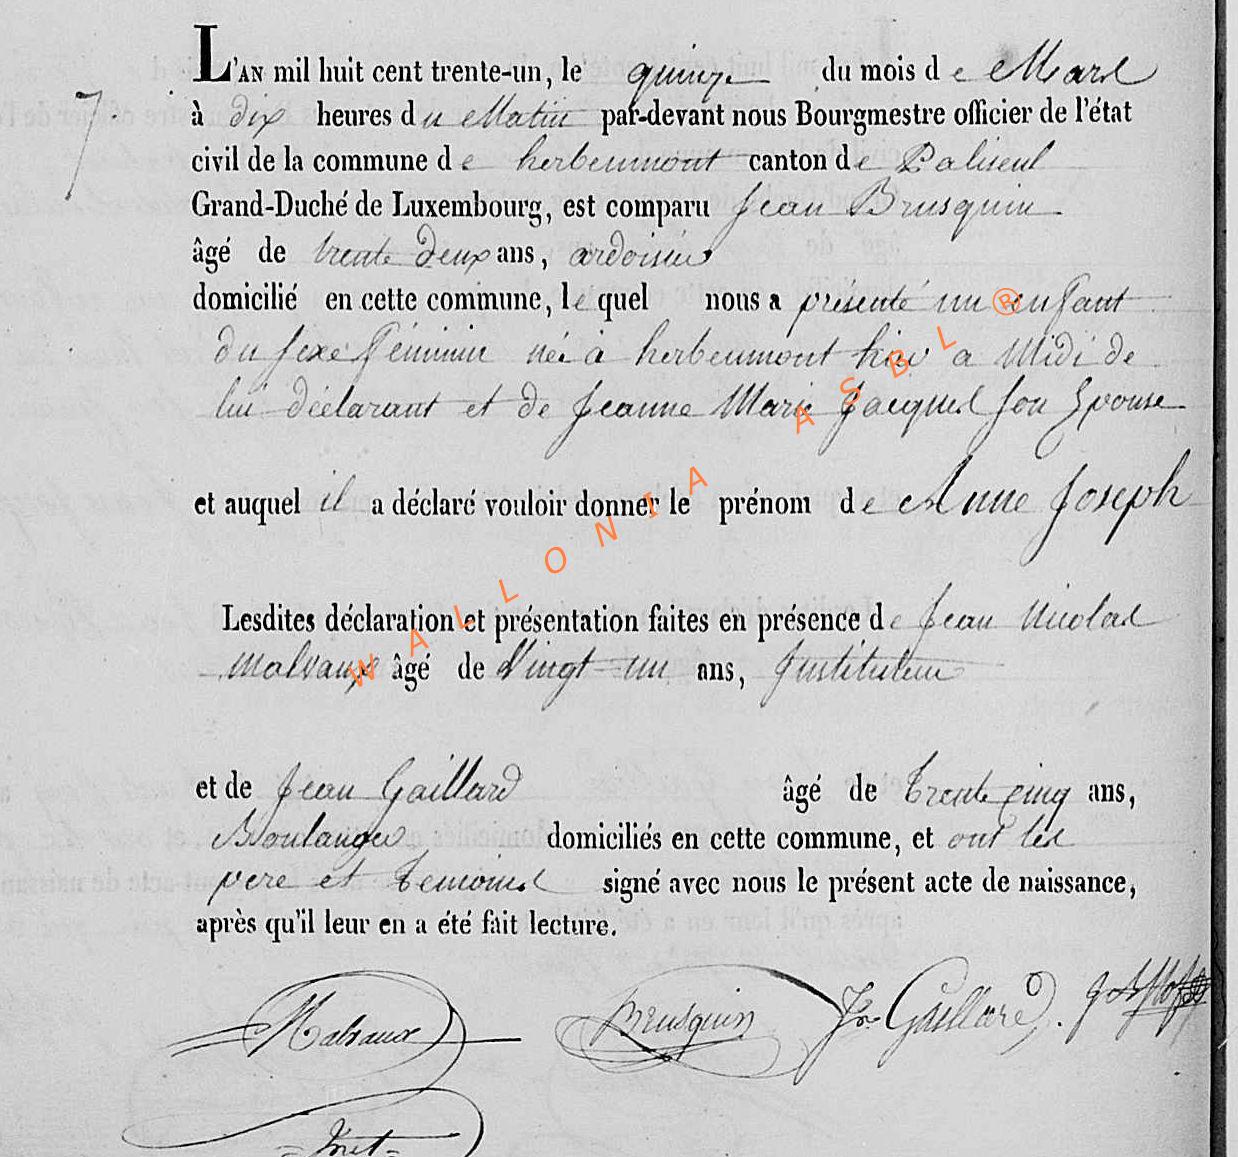 L'AN mil huit cent trente-un, le quinze du mois de Mars
7. à dix heures du Matin par-devant nous Bourgmestre officier de l'état
civil de la commune de herbeumont canton de Paliseul
Grand-Duché de Luxembourg, est comparu Jean Brusquin
âgé de trente deux ans, ardoisier
domicilié en cette commune, le quel nous a présenté un enfant
du sexe féminin né à herbeumont hier a Midi de
lui déclarant et de Jeanne Marie Jacques son Epouse
et auquel il a déclaré vouloir donner le prénom de Anne Joseph
Lesdites déclaration et présentation faites en présence de Jean Nicolas
Malvaux âgé de Vingt-un ans, Instituteur
et de Jean Gaillard âgé de trente cinq ans,
Boulanger domiciliés en cette commune, et ont les
pere et temoins signé avec nous le présent acte de naissance,
après qu'il leur en a été fait lecture.
Malvaux Brusquin Jn Gaillard.
WALLONIA ASBL ®